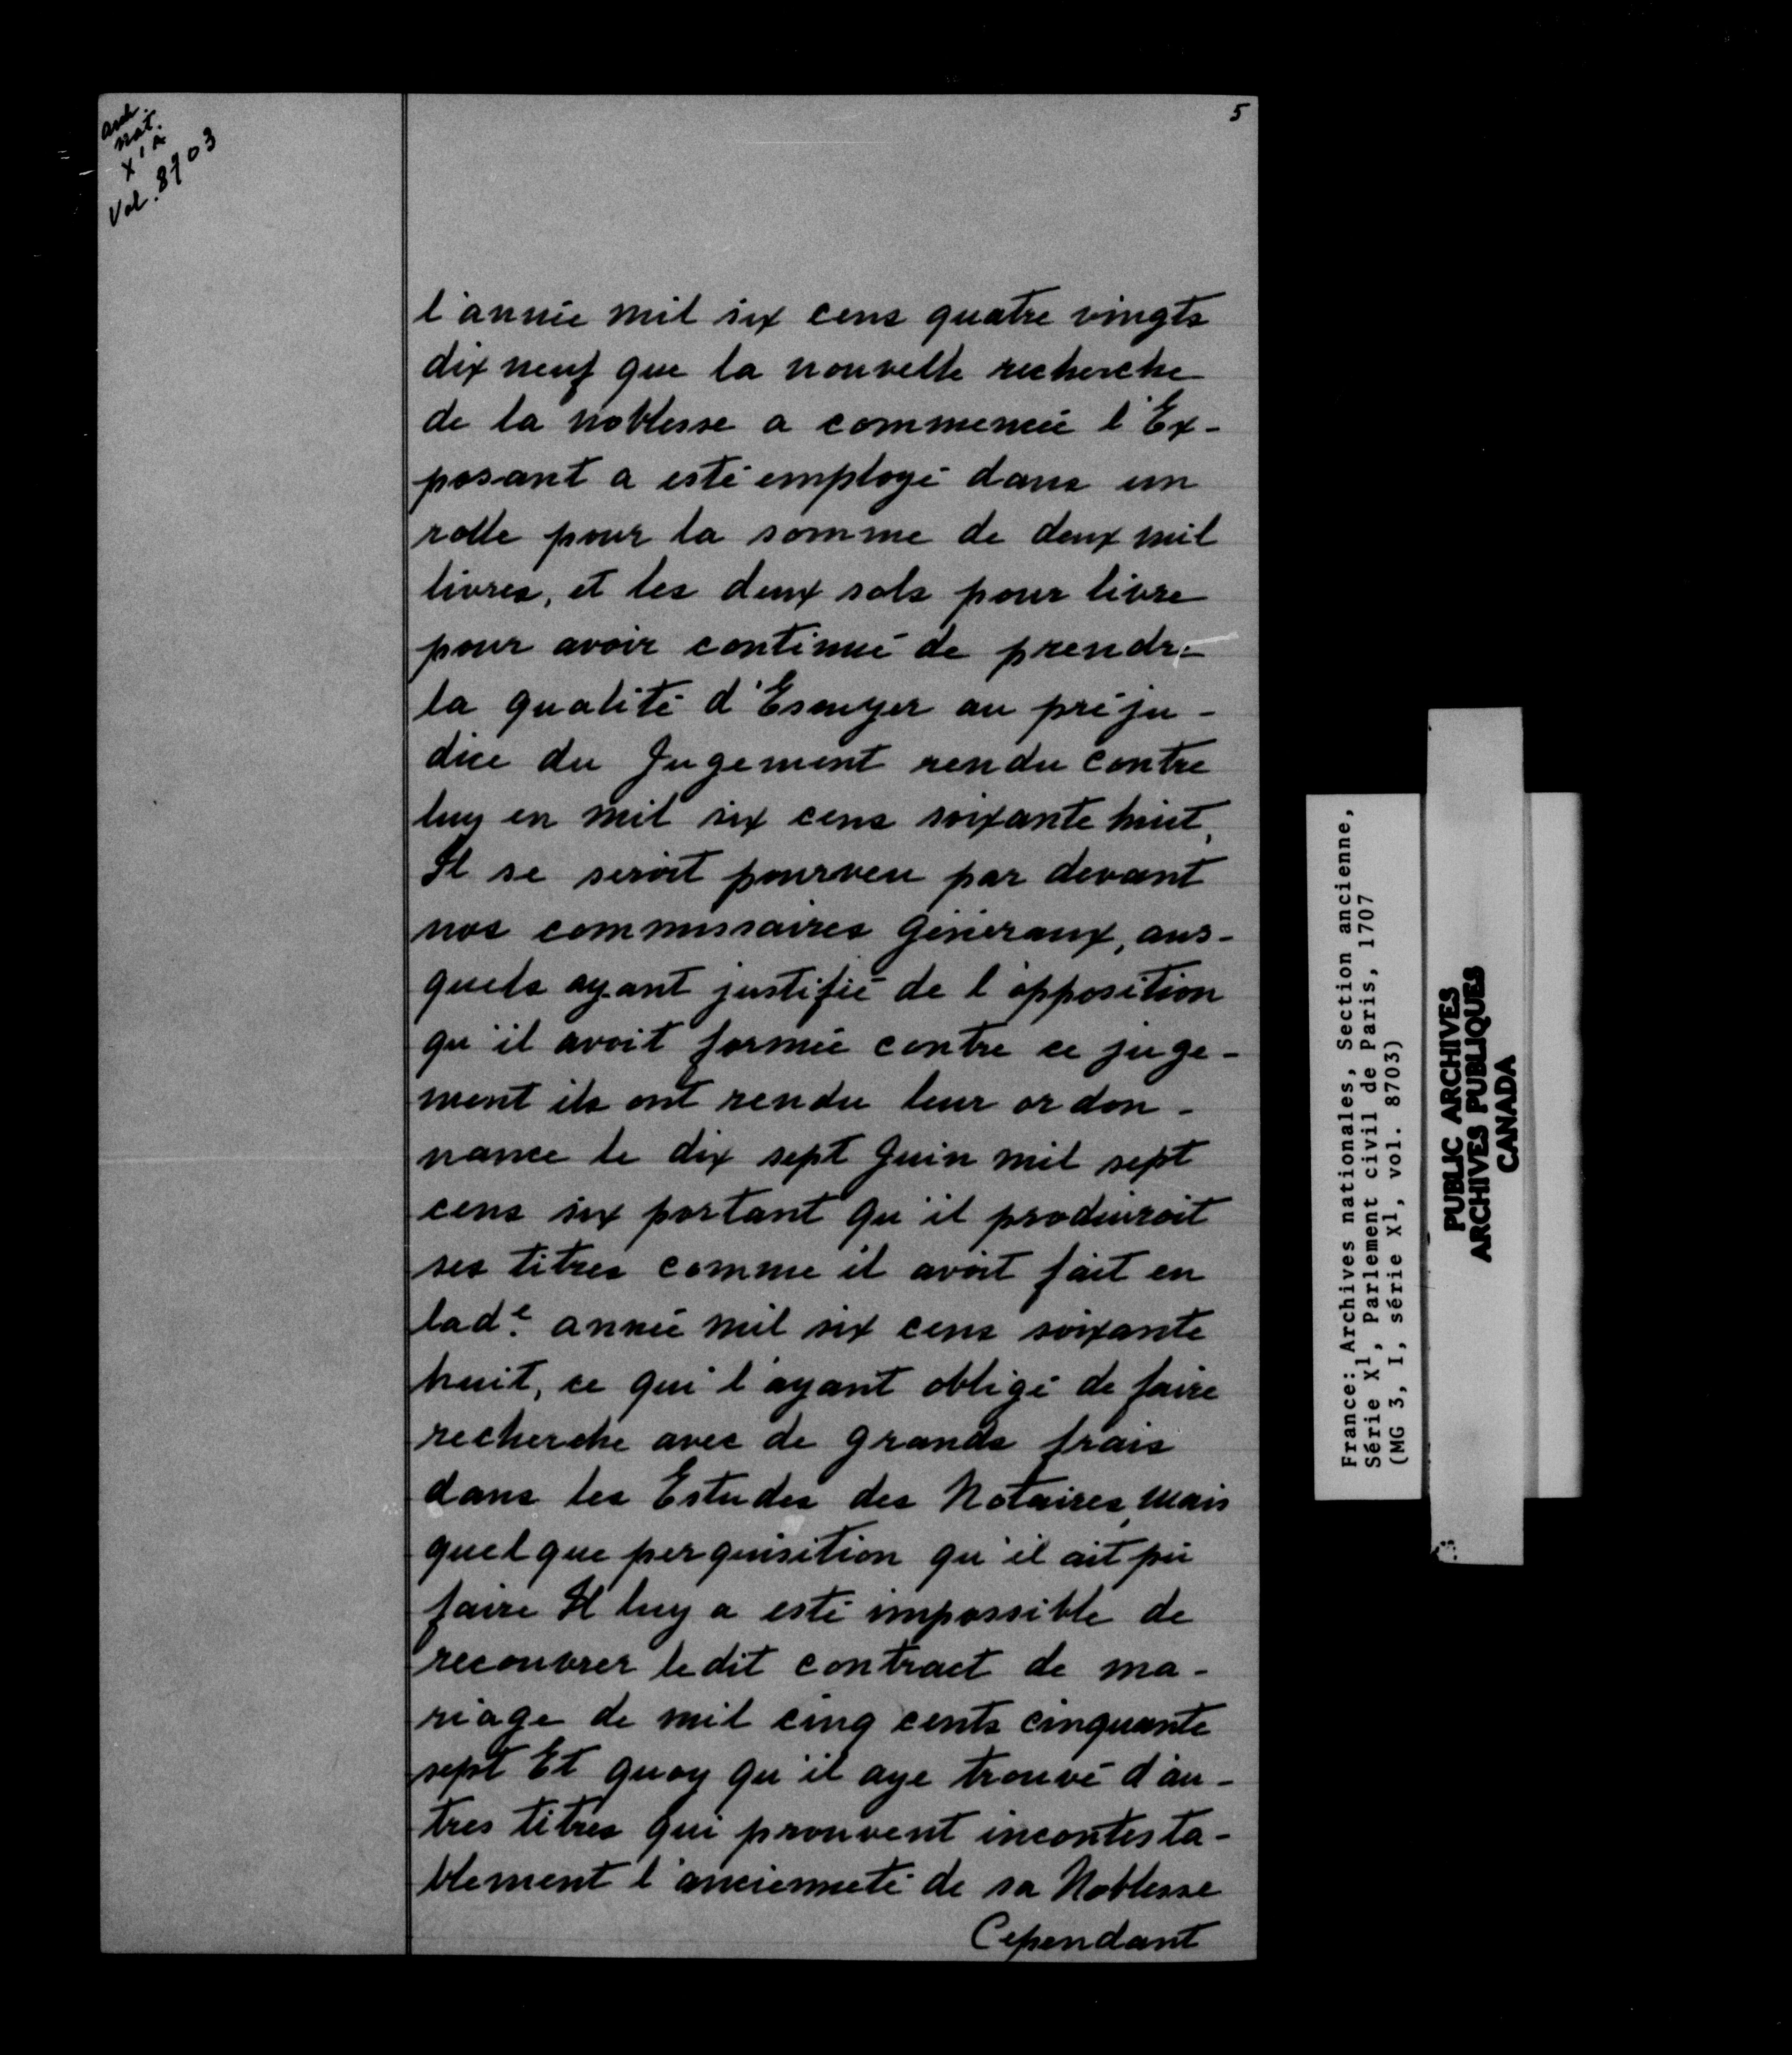 arch.
nat.
X1A
Vol. 8703
5
l'année mil six cens quatre vingts
dix neuf que la nouvelle recherche
de la noblesse a commencée l'Ex-
posant a esté employé dans un
rolle pour la somme de deux mil
livres, et les deux sols pour livre
pour avoir continué de prendre
la qualité d'Escuyer au préju-
dice du Jugement rendu contre
luy en mil six cens soixante huit,
Il se seroit pourveu par devant
nos commissaires généraux, aus-
quels ayant justifié de l'opposition
qu'il avoit formée contre ce juge-
ment ils ont rendu leur ordon-
nance le dix sept Juin mil sept
cens six portant qu'il produiroit
ses titres comme il avoit fait en
lade. année mil six cens soixante
huit, ce qui l'ayant obligé de faire
recherche avec de grands frais
dans les Estudes des Notaires, Mais
quelque perquisition qu'il ait pû
faire Il luy a esté impossible de
recouvrer ledit contract de ma-
riage de mil cinq cents cinquante
sept Et quoy qu'il aye trouvé d'au-
tres titres qui prouvent incontesta-
blement l'ancienneté de sa Noblesse
Cependant
France: Archives nationales, Section ancienne,
Série X1, Parlement civil de Paris, 1707
(MG 3, I, série X1, vol. 8703)
PUBLIC ARCHIVES
ARCHIVES PUBLIQUES
CANADA